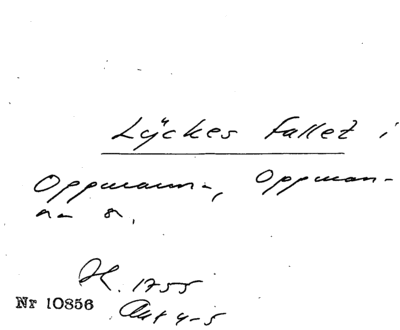 Lyckes fallet i
Oppmanna-, Oppman-
na sn.
H. 1755
Nr 10856 Akt 4-5